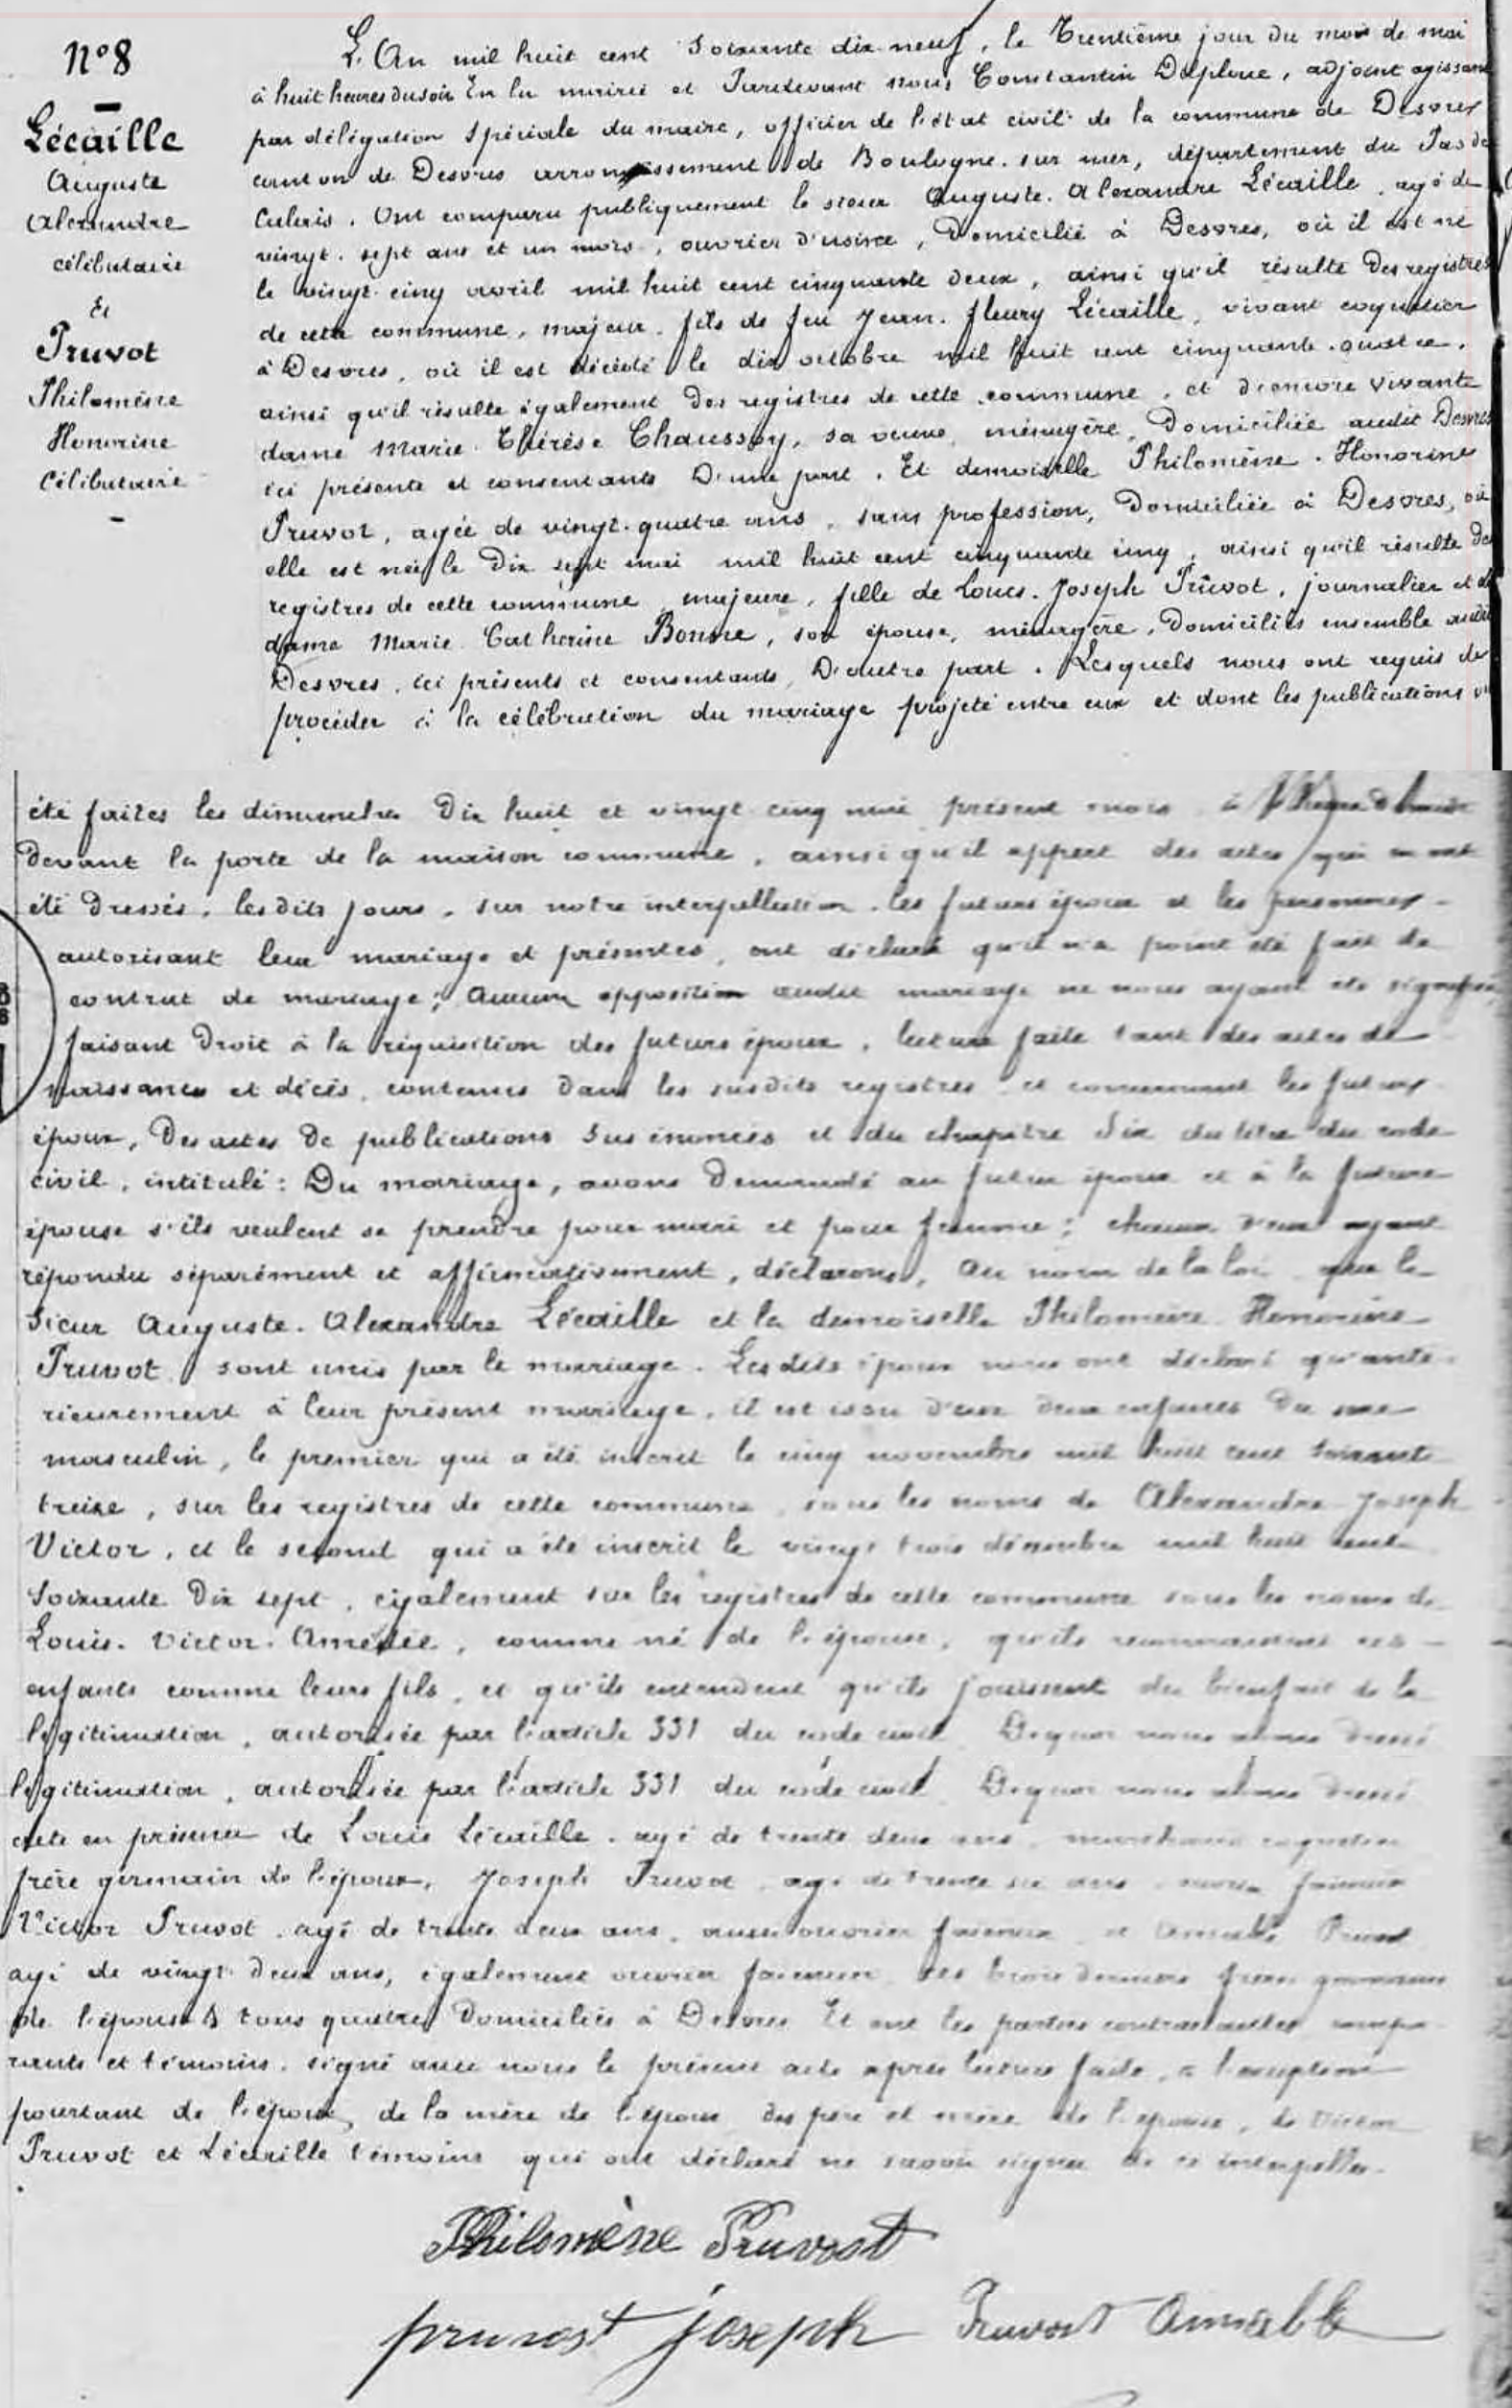 N° 8
Lécaille
Auguste
Alexandre
célibataire
Et
Pruvot
Philomène
Honorine
Célibataire
L'An mil huit cent soixante dix-neuf, le Trentième jour du mois de mai
à huit heures du soir En la mairie et Pardevant nous, Constantin Delplace, adjoint agissant
par délégation spéciale du maire, officier de l'état civil de la commune de Desvres
canton de Desvres arrondissement de Boulogne-sur-mer, département du Pas de
Calais. Ont comparu publiquement le sieur Auguste-Alexandre Lécaille, agé de
vingt-sept ans et un mois, ouvrier d'usine, Domicilié à Desvres, où il est né
le vingt-cinq avril mil huit cent cinquante deux, ainsi qu'il résulte des registres
de cette commune, majeur, fils de feu Jean-fleury Lécaille, vivant coquetier
à Desvres, où il est décédé le dix octobre mil huit cent cinquante-quatre,
ainsi qu'il résulte également des registres de cette commune, et d'encore vivante
dame Marie-Thérèse Chaussoy, sa veuve, ménagère, Domiciliée audit Desvres
ici présente et consentante D'une part. Et demoiselle Philomène-Honorine
Pruvot, agée de vingt-quatre ans, sans profession, Domiciliée à Desvres, où
elle est née le Dix sept mai mil huit cent cinquante cinq, ainsi qu'il résulte des
registres de cette commune, majeure, fille de Louis-Joseph Pruvot, journalier et de
dame Marie Catherine Bonne, son épouse, ménagère, Domiciliés ensemble audit
Desvres, ici présents et consentants, D'autre part. Lesquels nous ont requis de
procéder à la célébration du mariage projeté entre eux et dont les publications
été faites les dimanches Dix huit et vingt cinq mai présent mois à
Devant la porte de la maison commune, ainsi qu'il appert des actes qui en ont
été Dressés, lesdits jours, sur notre interpellation, les futurs époux et les personnes
autorisant leur mariage et présentes, ont déclaré qu'il n'a point été fait de
contrat de mariage; Aucune opposition audit mariage ne nous ayant été signifiée,
faisant Droit à la réquisition des futurs époux, lecture faite tant des actes de
naissances et décès, contenus dans les susdits registres et concernant les futurs
époux, Des actes de publications sus énoncés et du chapitre Six du titre du code
civil, intitulé: Du mariage, avons Demandé au futur époux et à la future
épouse s'ils veulent se prendre pour mari et pour femme; chacun d'eux ayant
répondu séparément et affirmativement, déclarons, Au nom de la loi que le
Sieur Auguste-Alexandre Lécaille et la demoiselle Philomène Honorine
Pruvot sont unis par le mariage. Lesdits époux nous ont déclaré qu'anté-
rieurement à leur présent mariage, il est issu d'eux deux enfants Du sexe
masculin, le premier qui a été inscrit le cinq novembre mil huit cent soixante
treize, sur les registres de cette commune, sous les noms de Alexandre-Joseph
Victor, et le second qui a été inscrit le vingt trois décembre mil huit cent
soixante Dix sept, également sur les registres de cette commune sous les noms de
Louis-Victor-Amédée, comme né de l'épouse, qu'ils reconnaissent ces
enfants comme leurs fils, et qu'ils entendent qu'ils jouissent du bienfait de la
légitimation, autorisée par l'article 331 du code civil. De quoi nous avons dressé
légitimation, autorisée par l'article 331 du code civil. De quoi nous avons dressé
acte en présence de Louis Lécaille, agé de trente deux ans, marchand coquetier
frère germain de l'époux, Joseph Pruvot, agé de trente six ans, ouvrier faïencier
Victor Pruvot, agé de trente deux ans, aussi ouvrier faïencier et Amable Pruvot
agé de vingt-deux ans, également ouvrier faïencier, ces trois derniers frères germains
de l'épouse, tous quatre Domiciliés à Desvres. Et ont les parties contractantes, compa-
rants et témoins, signé avec nous le présent acte après lecture faite, à l'exception
pourtant de l'époux, de la mère de l'époux, des père et mère de l'épouse, de Victor
Pruvot et Lécaille témoins qui ont déclaré ne savoir signer de ce interpellés.
Philomène Pruvost
pruvost joseph Pruvost Amable